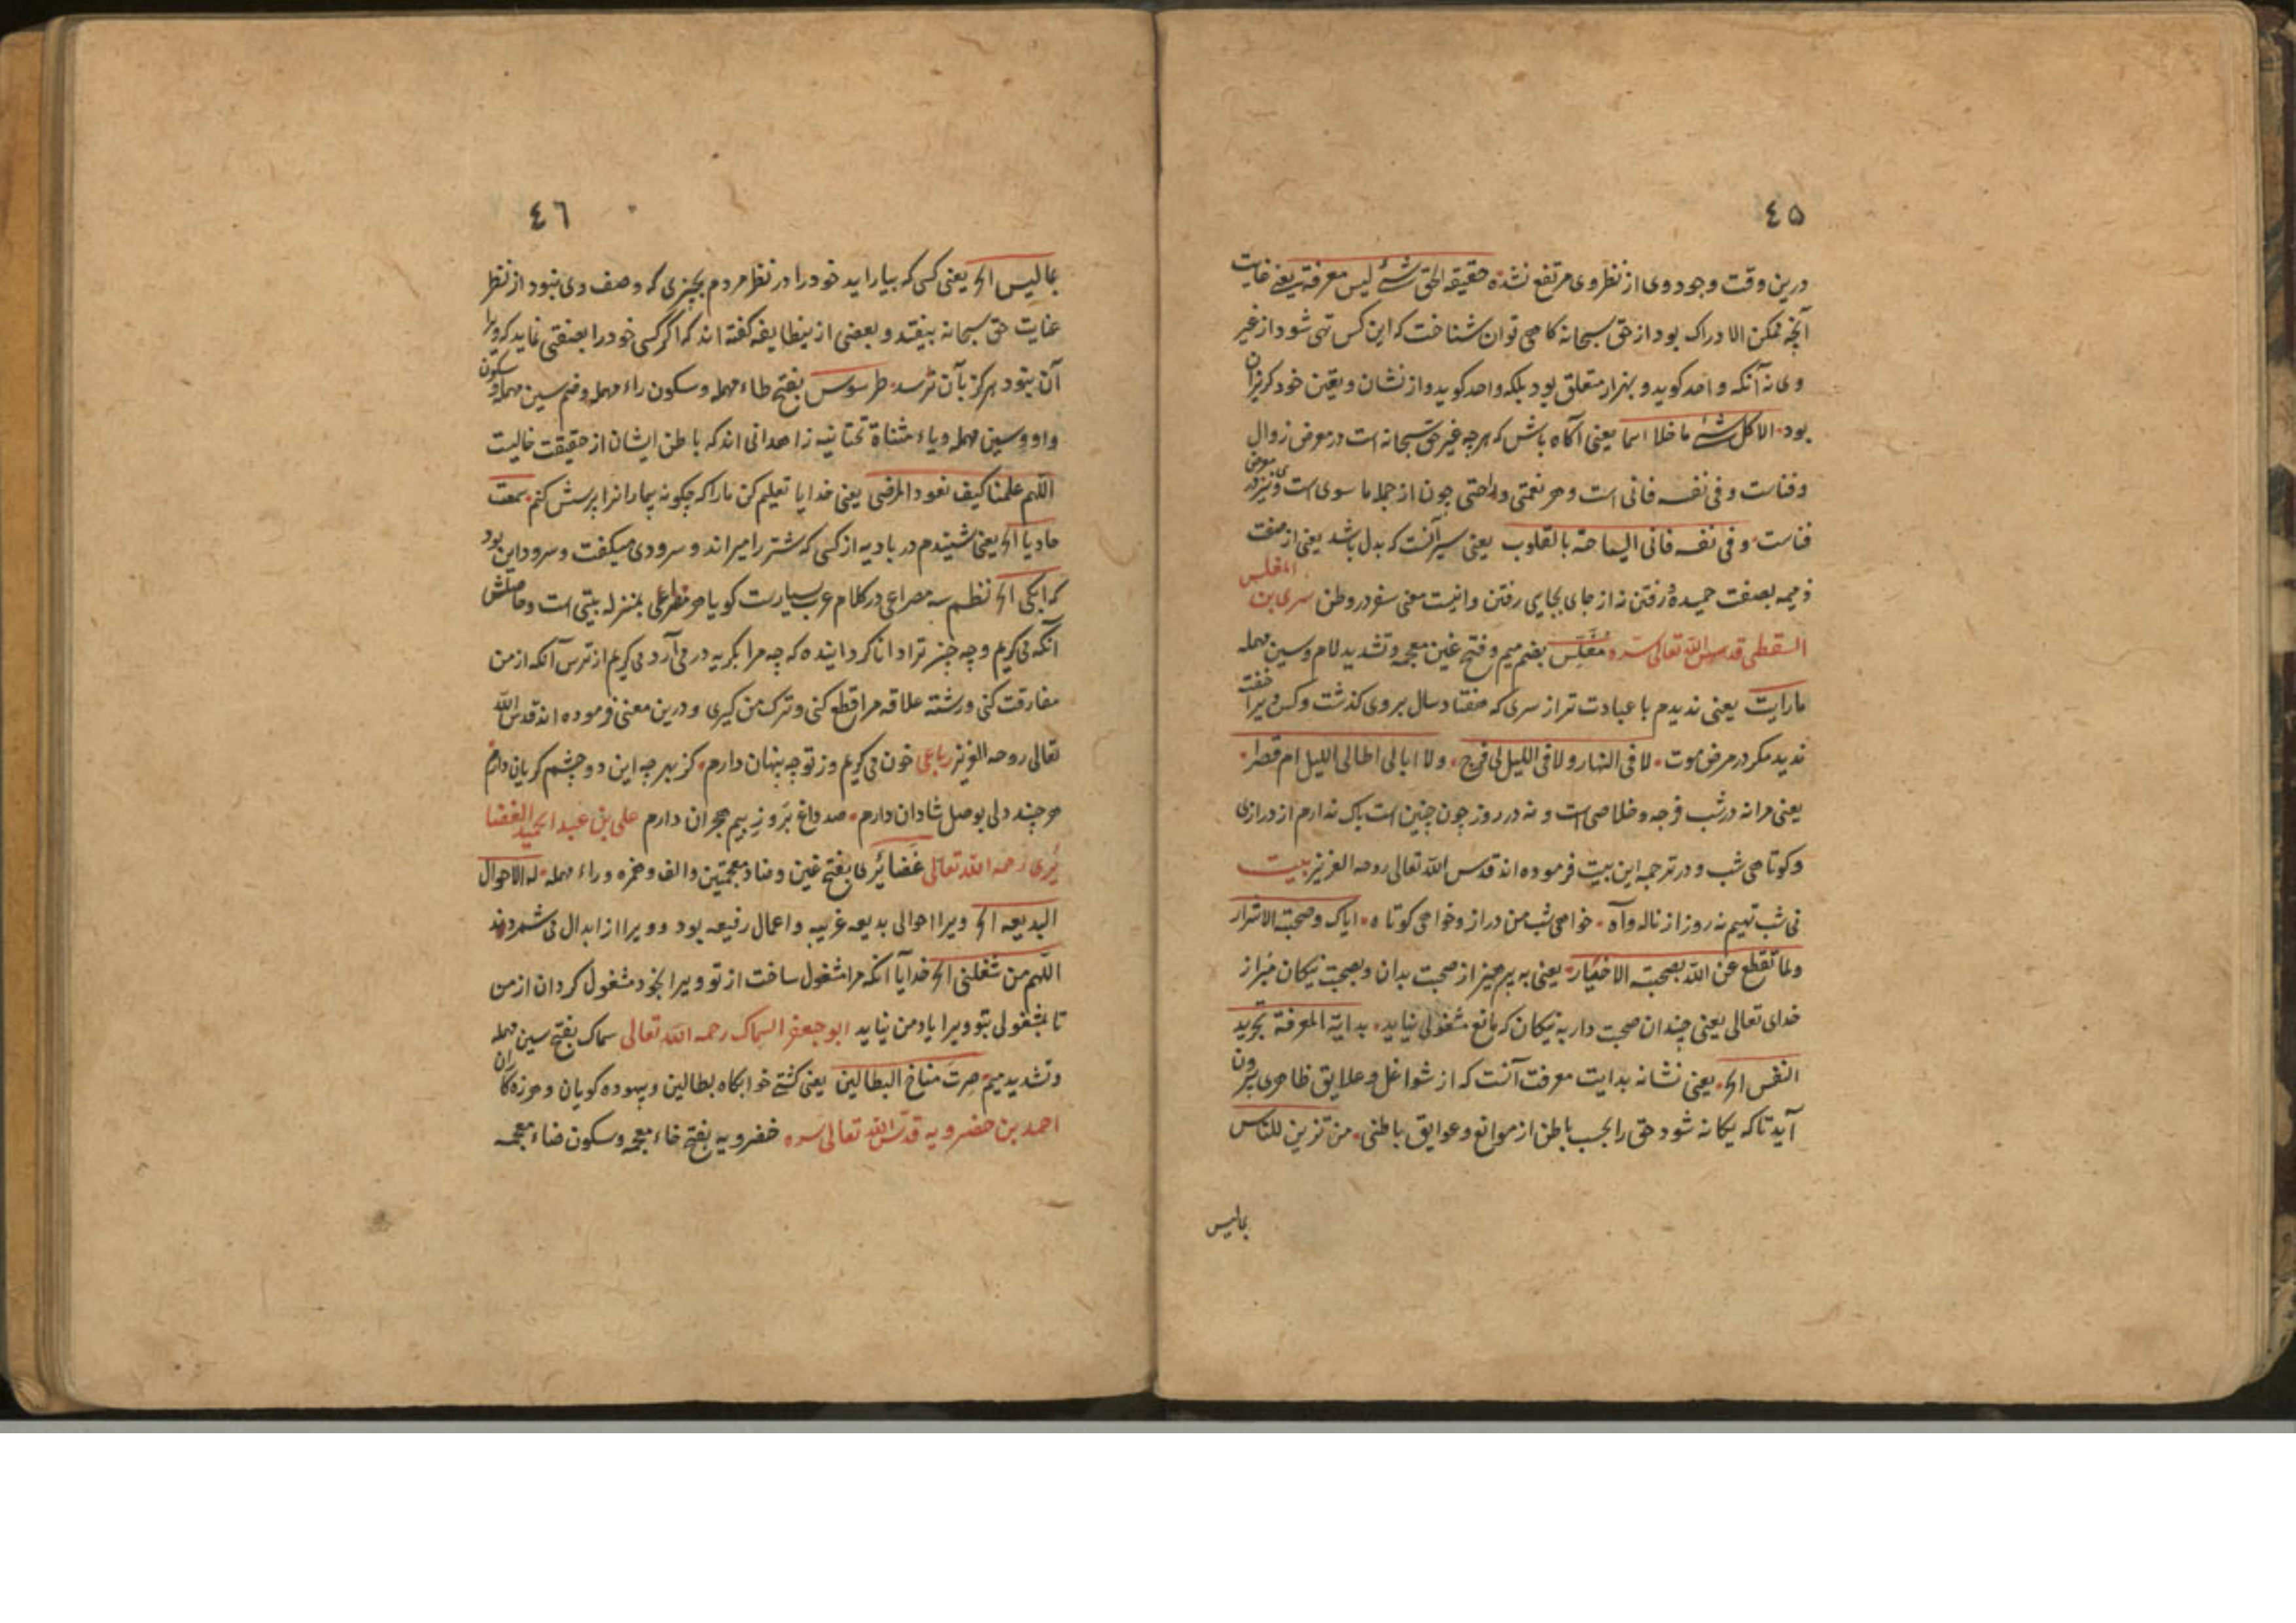 ٤٥
درین وقت وجود وی از نظر وی مرتفع نشده حقیقه الحق شئ لیس معرفة یعنی غایت
آنچه ممکن الادراک بود از حق سبحانه کاهی توان شناخت که این کس تهی شود از غیر
وی نه آنکه واحد کوید و بهزار متعلق بود بلکه واحد کوید و از نشان و یقین خود کریزان
بود الا کل شئ ما خلا اسما یعنی آکاه باش که هرچه غیر حق سبحانه است در معرض زوال
و فناست و فی نفسه فانی است و هر نعمتی و راحتی چون از جمله ما سوی است وی نیز در معرض
فناست و فی نفسه فانی السیاحة بالقلوب یعنی سیر آنست که بدل باشد یعنی از صفت
ذمیمه بصفت حمیده رفتن نه از جای بجایی رفتن و اینست معنی سفر در وطن سری بن المغلس
السقطی قدس الله تعالی سره مُغَلِّس بضم میم و فتح غین معجمه و تشدید لام و سین مهمله
ما رایت یعنی ندیدم با عبادت تر از سری که هفتاد سال بر وی کذشت و کس ویرا خفته
ندید مکر در مرض موت لا فی النهار ولا فی اللیل لی فرج ولا ابالی اطال اللیل ام قصرا
یعنی مرا نه در شب فرجه و خلاصی است و نه در روز چون چنین است باک ندارم از درازی
و کوتاهی شب و در ترجمه این بیت فرموده اند قدس الله تعالی روحه العزیز بیت
نی شب تهیم نه روز از ناله و آه خواهی شب من دراز و خواهی کوتاه ایاک و صحبة الاشرار
ولا تقطع عن الله بصحبة الاخیار یعنی به پرهیز از صحبت بدان و بصحبت نیکان مبر از
خدای تعالی یعنی چندان صحبت دار به نیکان که مانع مشغولی نیاید بدایة المعرفة تجرید
النفس الخ یعنی نشانه بدایت معرفت آنست که از شواغل و علایق ظاهری بیرون
آید تا که یکانه شود حق را بحسب باطن از موانع و عوایق باطنی من تزین للناس
بمالیس
٤٦
بمالیس الخ یعنی کسی که بیاراید خود را در نظر مردم بچیزی که وصف وی نبود از نظر
عنایت حق سبحانه بیفتد و بعضی ازینطایفه کفته اند که اکر کسی خود را بصفتی نماید که ویرا
آن نبود هرکز بآن نرسد طرسوس بفتح طاء مهمله و سکون راء مهمله و ضم سین مهمله و سکون
واو و سین مهمله ویاء مثناة تحتانیه زاهدانی اند که باطن ایشان از حقیقت خالیست
اللهم علمنا کیف نعود المرضی یعنی خدایا تعلیم کن ما را که چکونه بیمارانرا پرسش کنم سمعت
حادیا الخ یعنی شنیدم در بادیه از کسی که شتر را میراند و سرودی میکفت و سرود این بود
که ابکی الخ نظم سه مصراعی در کلام عرب بسیارست کویا هر مصراعی بمنزله بیتی است و حاصلش
آنکه می کریم و چه چیز ترا دانا کرداینده که چه مرا بکریه در می آرد می کریم از ترس آنکه از من
مفارقت کنی و رشته علاقه مرا قطع کنی و ترک من کیری و درین معنی فرموده اند قدس الله
تعالی روحه العزیز رباعی خون می کریم وز تو چه پنهان دارم کز بهر چه این دو چشم کریان دارم
هرچند دلی بوصل شادان دارم صد داغ بَرُو زِ بیم هجران دارم علی بن عبد الحمید الغضا
یُری رحمه الله تعالی غَضائِری بفتح غین و ضاد معجمتین و الف و همزه و راء مهمله له الاحوال
البدیعه الخ ویرا احوالی بدیعه غریبه و اعمال رفیعه بود و ویرا از ابدال می شمردند
اللهم من شغلنی الخ خدایا آنکه مرا مشغول ساخت از تو ویرا بخود مشغول کردان از من
تا بمشغولی بتو ویرا یاد من نیاید ابو جعفر السماک رحمه الله تعالی سماک بفتح سین مهمله
و تشدید میم صرتَ مناخ البطالین یعنی کشتی خوابکاه بطالین و بیهوده کویان و هرزه کاران
احمد بن خضرویه قدس الله تعالی سره خضرویه بفتح خاء معجمه و سکون ضاء معجمه